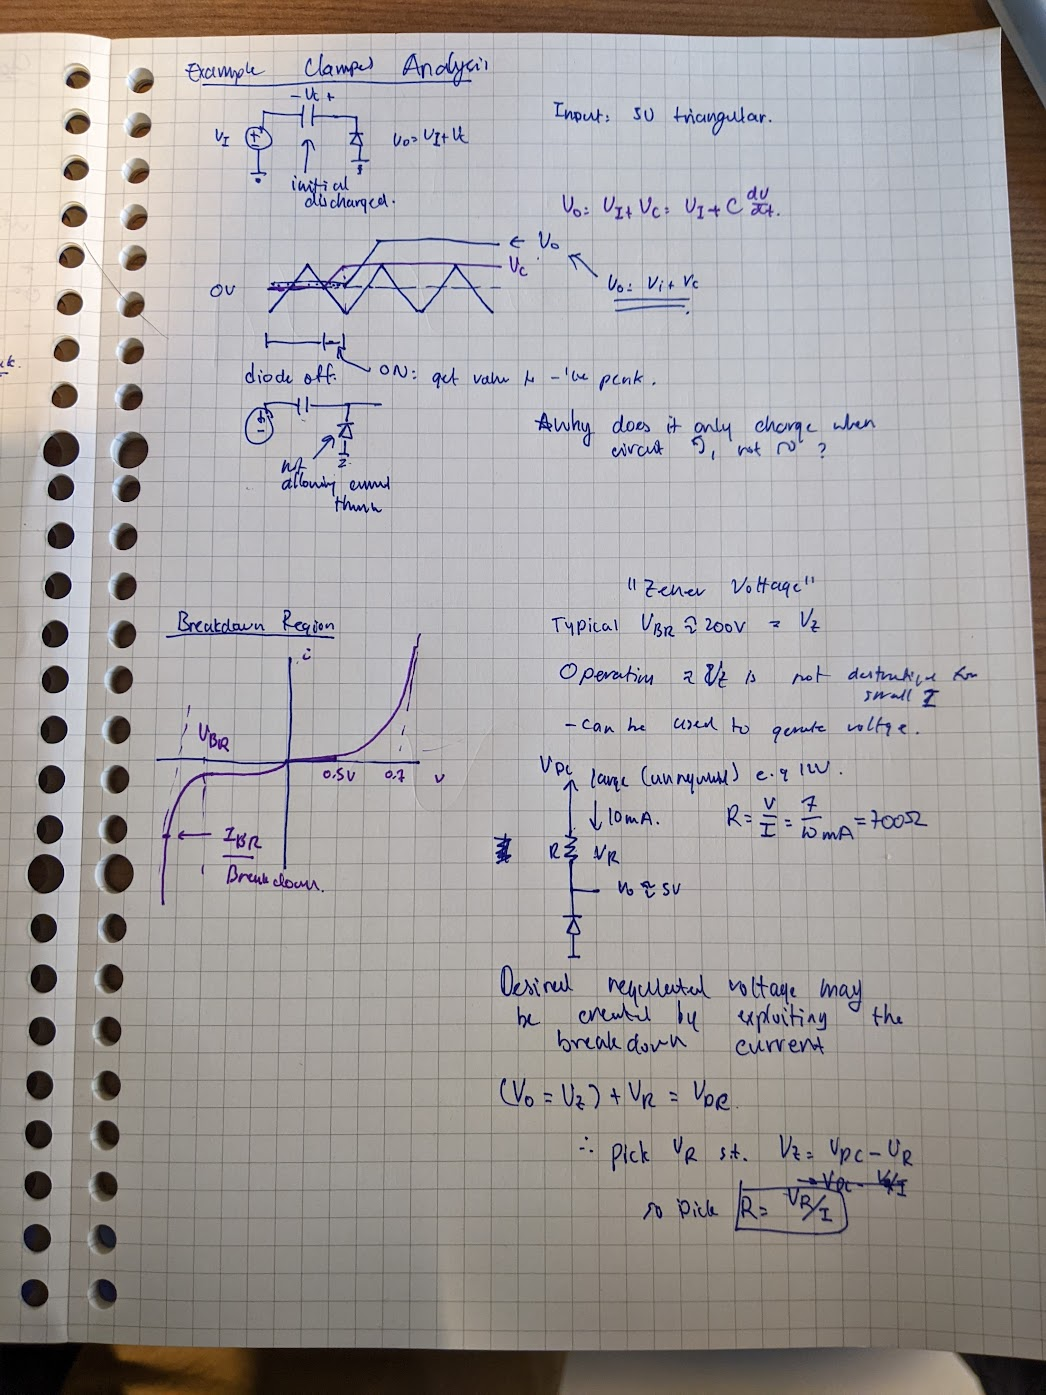 Example Clamped Analysis
- Vc +
VI
Vo = VI + Vc
initial
discharged.
Input: 5V triangular.
Vo = VI + Vc = VI + C dV/dt.
0V
← Vo
Vc
Vo = Vi + Vc
diode off.
ON: get value to -'ve peak.
not
allowing current
through
* Why does it only charge when
circuit ↺, not ↻ ?
Breakdown Region
i
VBR
0.5V 0.7 v
IBR
Breakdown.
"Zener Voltage"
Typical VBR ≈ 200V = VZ
Operation ≈ VZ is not destructive for
small I
- can be used to generate voltage.
VDC
large (unregulated) e.g 12V.
↓ 10mA.
R = V/I = 7/10mA = 700Ω
R VR
Vo ≈ 5V
Desired regulated voltage may
be created by exploiting the
breakdown current
(Vo = VZ) + VR = VDC.
∴ pick VR s.t. VZ = VDC - VR
so pick R = VR/I